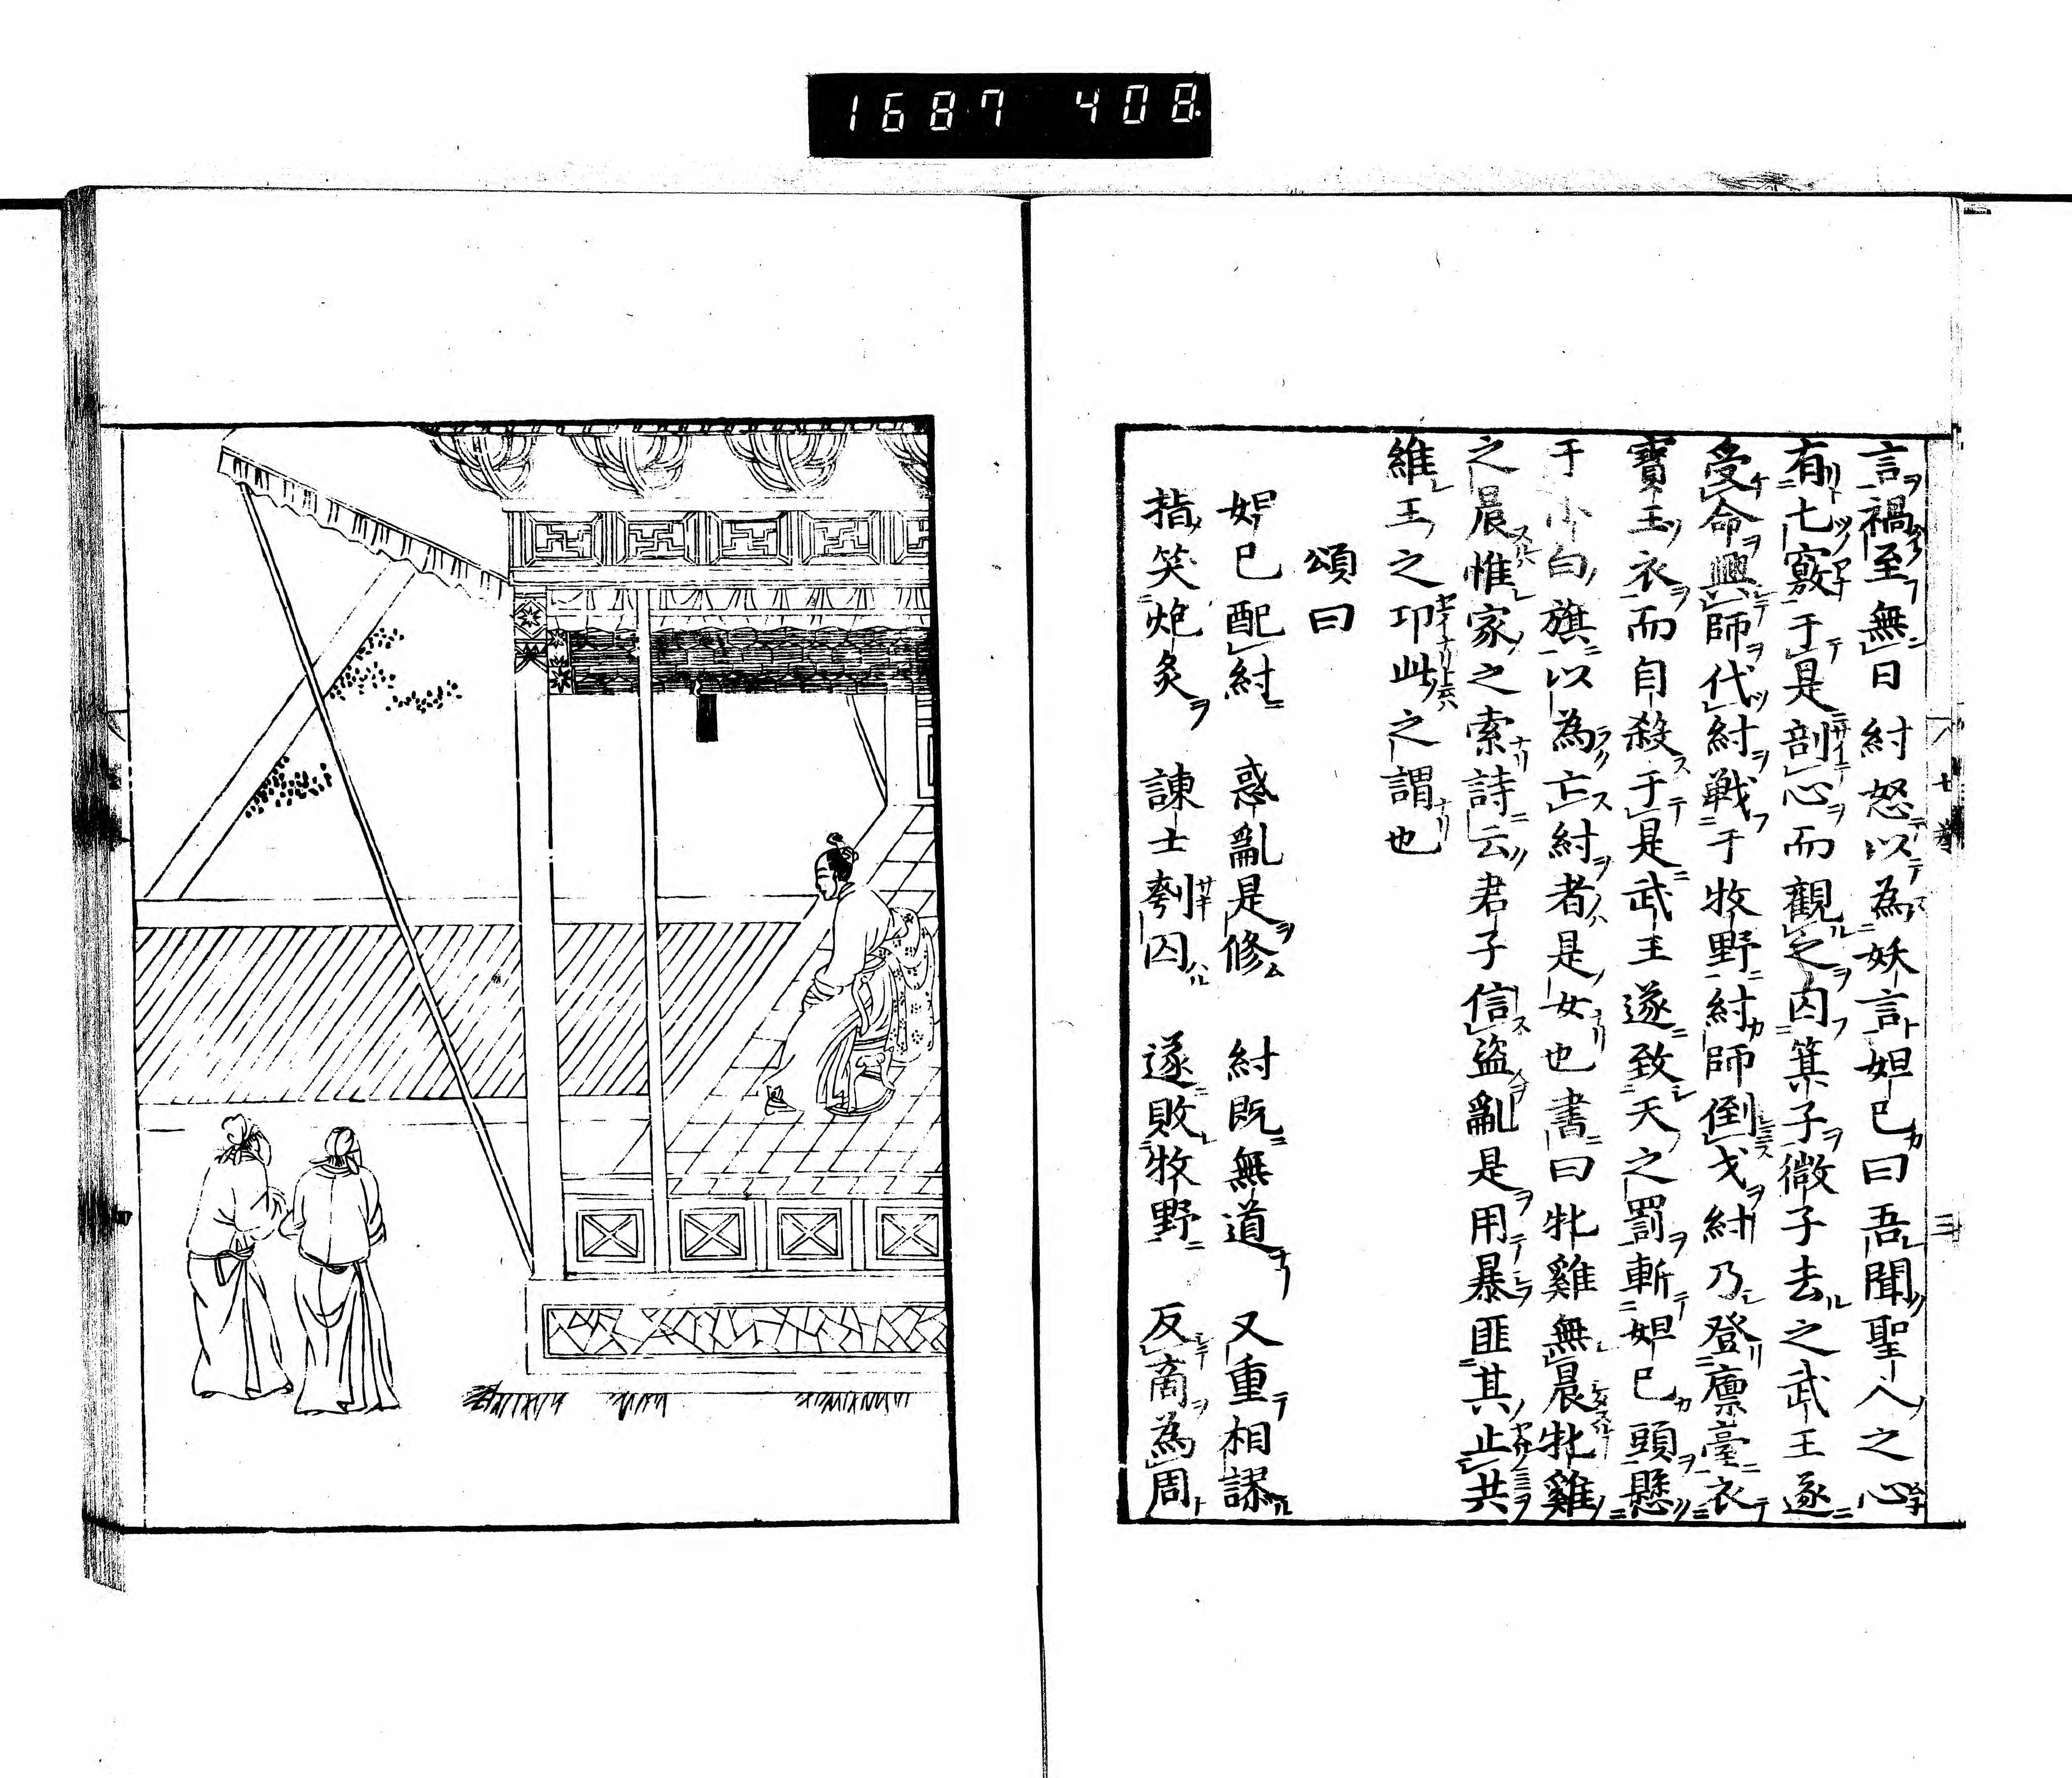 1687 408
言禍至無日紂怒以為妖言妲己曰吾聞聖人之心
有七竅于是剖心而觀之囚箕子微子去之武王遂
受命興師伐紂戰于牧野紂師倒戈紂乃登廩臺衣
寶玉衣而自殺于是武王遂致天之罰斬妲己頭懸
于小白旗以為亡紂者是女也書曰牝雞無晨牝雞
之晨惟家之索詩云君子信盜亂是用暴匪其止共
維王之卭此之謂也
頌曰
妲己配紂 惑亂是修 紂既無道 又重相謬
指笑炮炙 諫士刳囚 遂敗牧野 反商為周